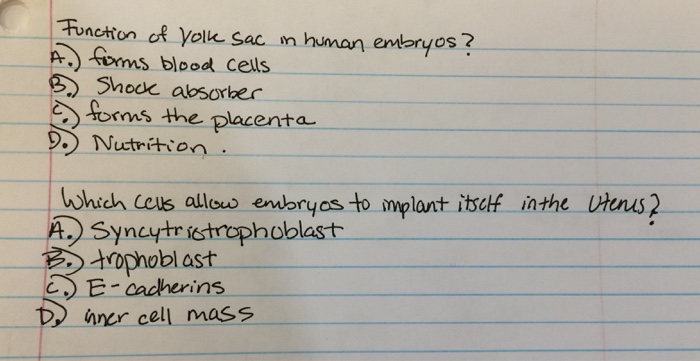 Function of Yolk Sac in human embryos?
A.) forms blood cells
B.) Shock absorber
C.) forms the placenta
D.) Nutrition.
Which cells allow embryos to implant itself in the Uterus?
A.) Syncytriotrophoblast
B.) trophoblast
C.) E-cadherins
D.) inner cell mass